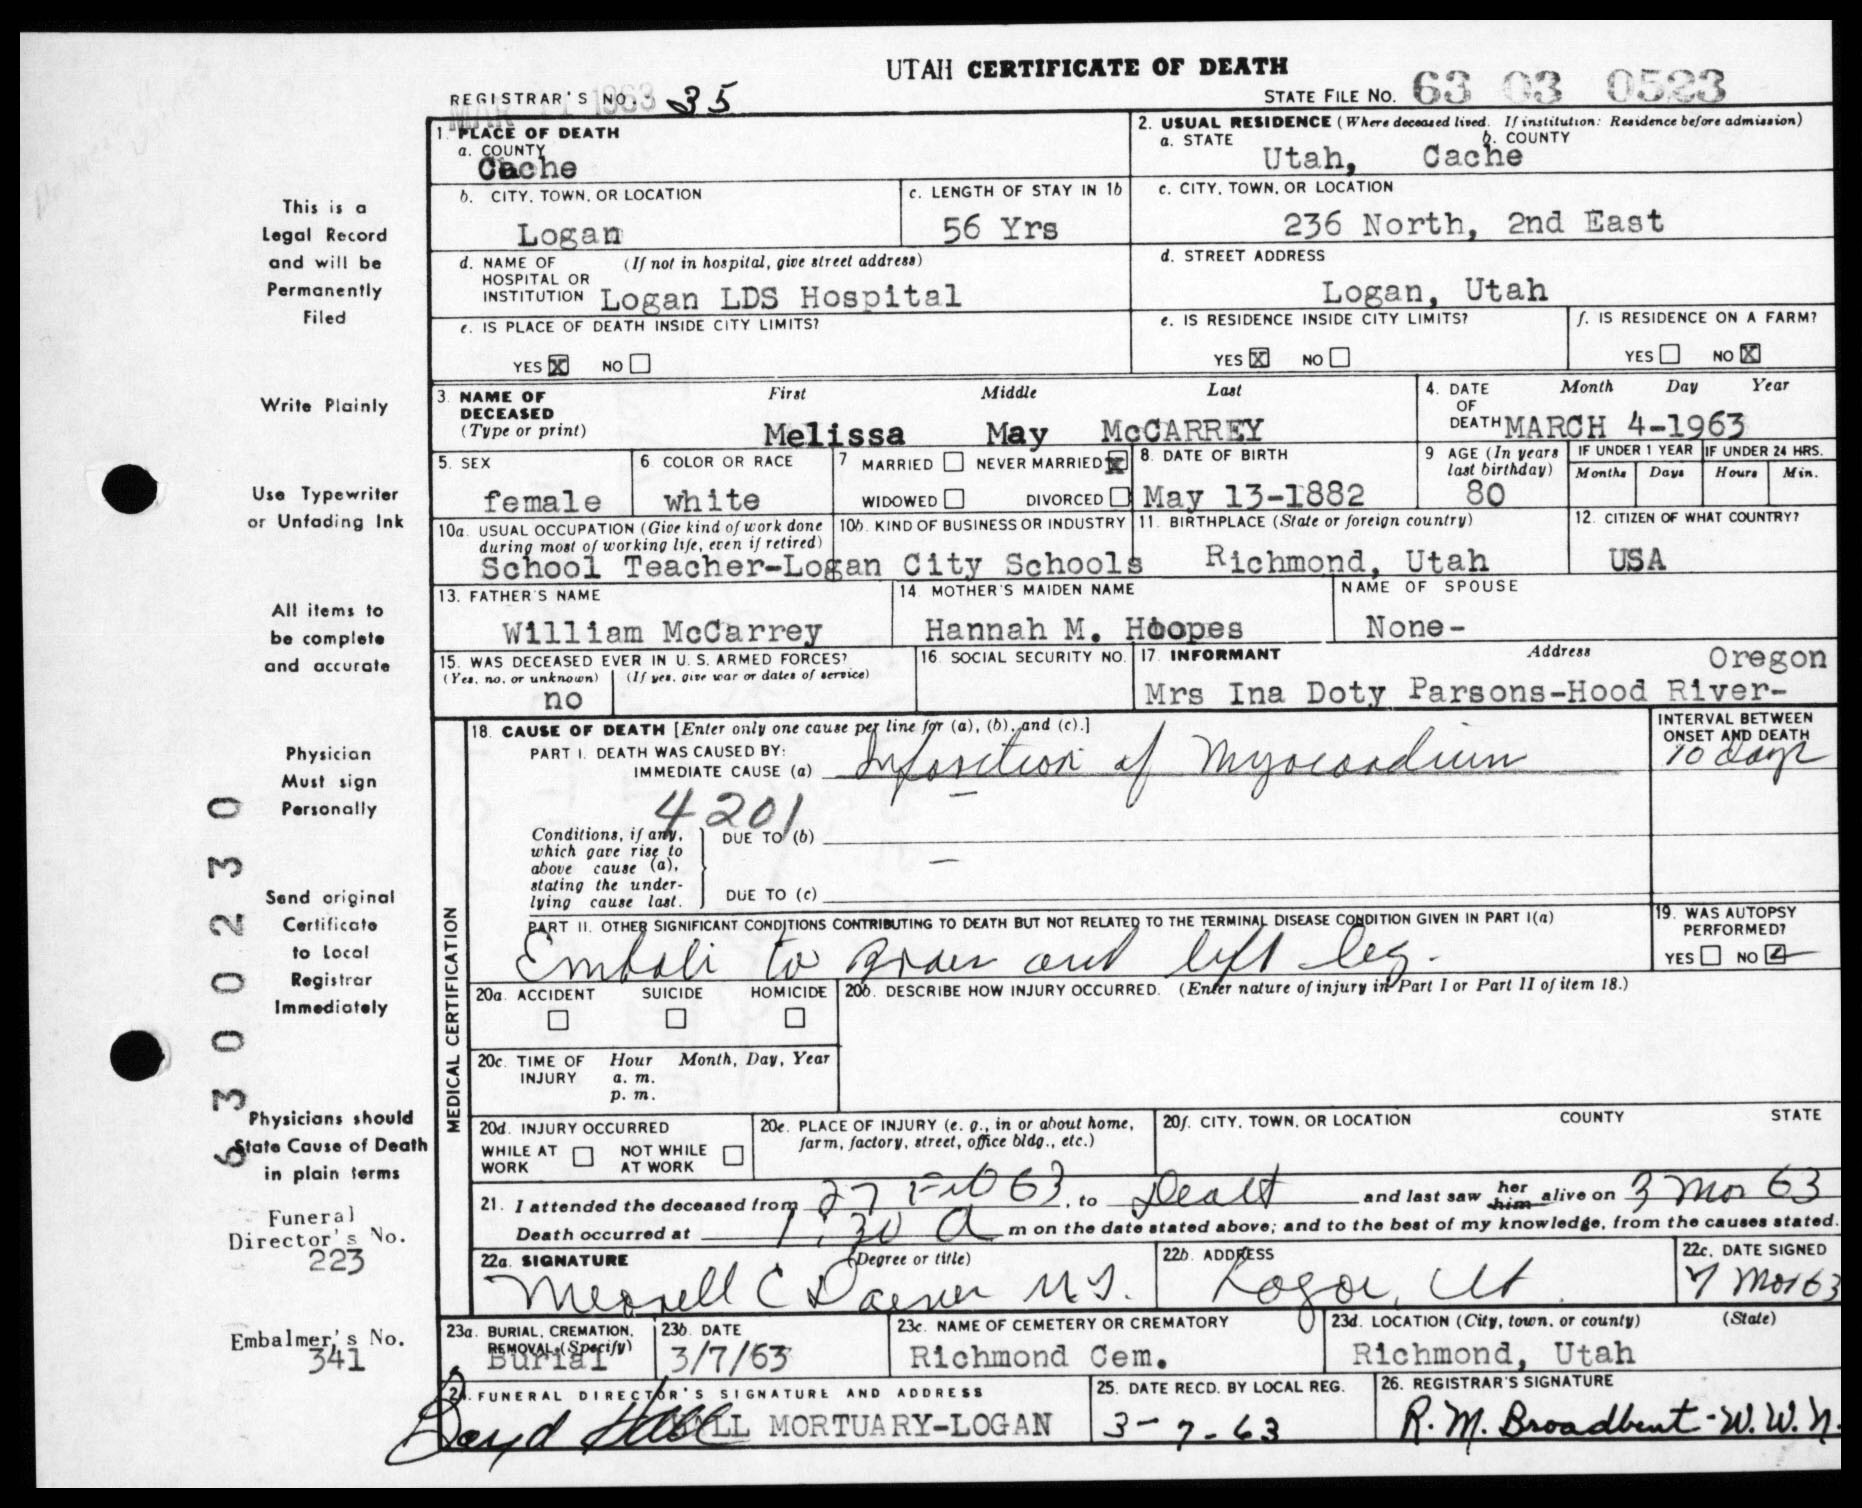 UTAH CERTIFICATE OF DEATH
REGISTRAR'S NO. 35
MAR 1963
STATE FILE NO. 63 03 0523
1. PLACE OF DEATH
a. COUNTY
Cache
2. USUAL RESIDENCE (Where deceased lived. If institution: Residence before admission)
a. STATE b. COUNTY
Utah, Cache
b. CITY, TOWN, OR LOCATION
Logan
c. LENGTH OF STAY IN 1b
56 Yrs
c. CITY, TOWN, OR LOCATION
236 North, 2nd East
d. NAME OF HOSPITAL OR INSTITUTION (If not in hospital, give street address)
Logan LDS Hospital
d. STREET ADDRESS
Logan, Utah
e. IS PLACE OF DEATH INSIDE CITY LIMITS?
YES X NO
e. IS RESIDENCE INSIDE CITY LIMITS?
YES X NO
f. IS RESIDENCE ON A FARM?
YES NO X
3. NAME OF DECEASED (Type or print)
First Middle Last
Melissa May McCARREY
4. DATE OF DEATH Month Day Year
MARCH 4-1963
5. SEX
female
6 COLOR OR RACE
white
7 MARRIED NEVER MARRIED X
WIDOWED DIVORCED
8. DATE OF BIRTH
May 13-1882
9 AGE (In years last birthday)
80
IF UNDER 1 YEAR
Months Days
IF UNDER 24 HRS.
Hours Min.
10a. USUAL OCCUPATION (Give kind of work done during most of working life, even if retired)
10b. KIND OF BUSINESS OR INDUSTRY
School Teacher-Logan City Schools
11. BIRTHPLACE (State or foreign country)
Richmond, Utah
12. CITIZEN OF WHAT COUNTRY?
USA
13. FATHER'S NAME
William McCarrey
14. MOTHER'S MAIDEN NAME
Hannah M. Hoopes
NAME OF SPOUSE
None-
15. WAS DECEASED EVER IN U. S. ARMED FORCES?
(Yes, no, or unknown) (If yes, give war or dates of service)
no
16. SOCIAL SECURITY NO.
17. INFORMANT Address
Oregon
Mrs Ina Doty Parsons-Hood River-
MEDICAL CERTIFICATION
18. CAUSE OF DEATH [Enter only one cause per line for (a), (b), and (c).]
PART I. DEATH WAS CAUSED BY:
IMMEDIATE CAUSE (a) Infarction of Myocardium
INTERVAL BETWEEN ONSET AND DEATH
10 days
4201
Conditions, if any, which gave rise to above cause (a), stating the underlying cause last.
DUE TO (b)
DUE TO (c)
PART II. OTHER SIGNIFICANT CONDITIONS CONTRIBUTING TO DEATH BUT NOT RELATED TO THE TERMINAL DISEASE CONDITION GIVEN IN PART I(a)
Emboli to Brain and left leg.
19. WAS AUTOPSY PERFORMED?
YES NO
20a. ACCIDENT SUICIDE HOMICIDE
20b. DESCRIBE HOW INJURY OCCURRED. (Enter nature of injury in Part I or Part II of item 18.)
20c. TIME OF INJURY Hour Month, Day, Year
a. m.
p. m.
20d. INJURY OCCURRED
WHILE AT WORK NOT WHILE AT WORK
20e. PLACE OF INJURY (e. g., in or about home, farm, factory, street, office bldg., etc.)
20f. CITY, TOWN, OR LOCATION COUNTY STATE
21. I attended the deceased from 27 Feb 63, to Death and last saw her him alive on 3 Mar 63
Death occurred at 1:30 a m on the date stated above; and to the best of my knowledge, from the causes stated.
22a. SIGNATURE (Degree or title)
Merrell C M.D.
22b. ADDRESS
Logan, Ut
22c. DATE SIGNED
7 Mar 63
23a. BURIAL, CREMATION, REMOVAL (Specify)
Burial
23b. DATE
3/7/63
23c. NAME OF CEMETERY OR CREMATORY
Richmond Cem.
23d. LOCATION (City, town, or county) (State)
Richmond, Utah
24. FUNERAL DIRECTOR'S SIGNATURE AND ADDRESS
Boyd Hall HALL MORTUARY-LOGAN
25. DATE RECD. BY LOCAL REG.
3-7-63
26. REGISTRAR'S SIGNATURE
R. M. Broadbent-W.W.N.
This is a
Legal Record
and will be
Permanently
Filed
Write Plainly
Use Typewriter
or Unfading Ink
All items to
be complete
and accurate
Physician
Must sign
Personally
Send original
Certificate
to Local
Registrar
Immediately
Physicians should
State Cause of Death
in plain terms
Funeral
Director's No.
223
Embalmer's No.
341
6300230